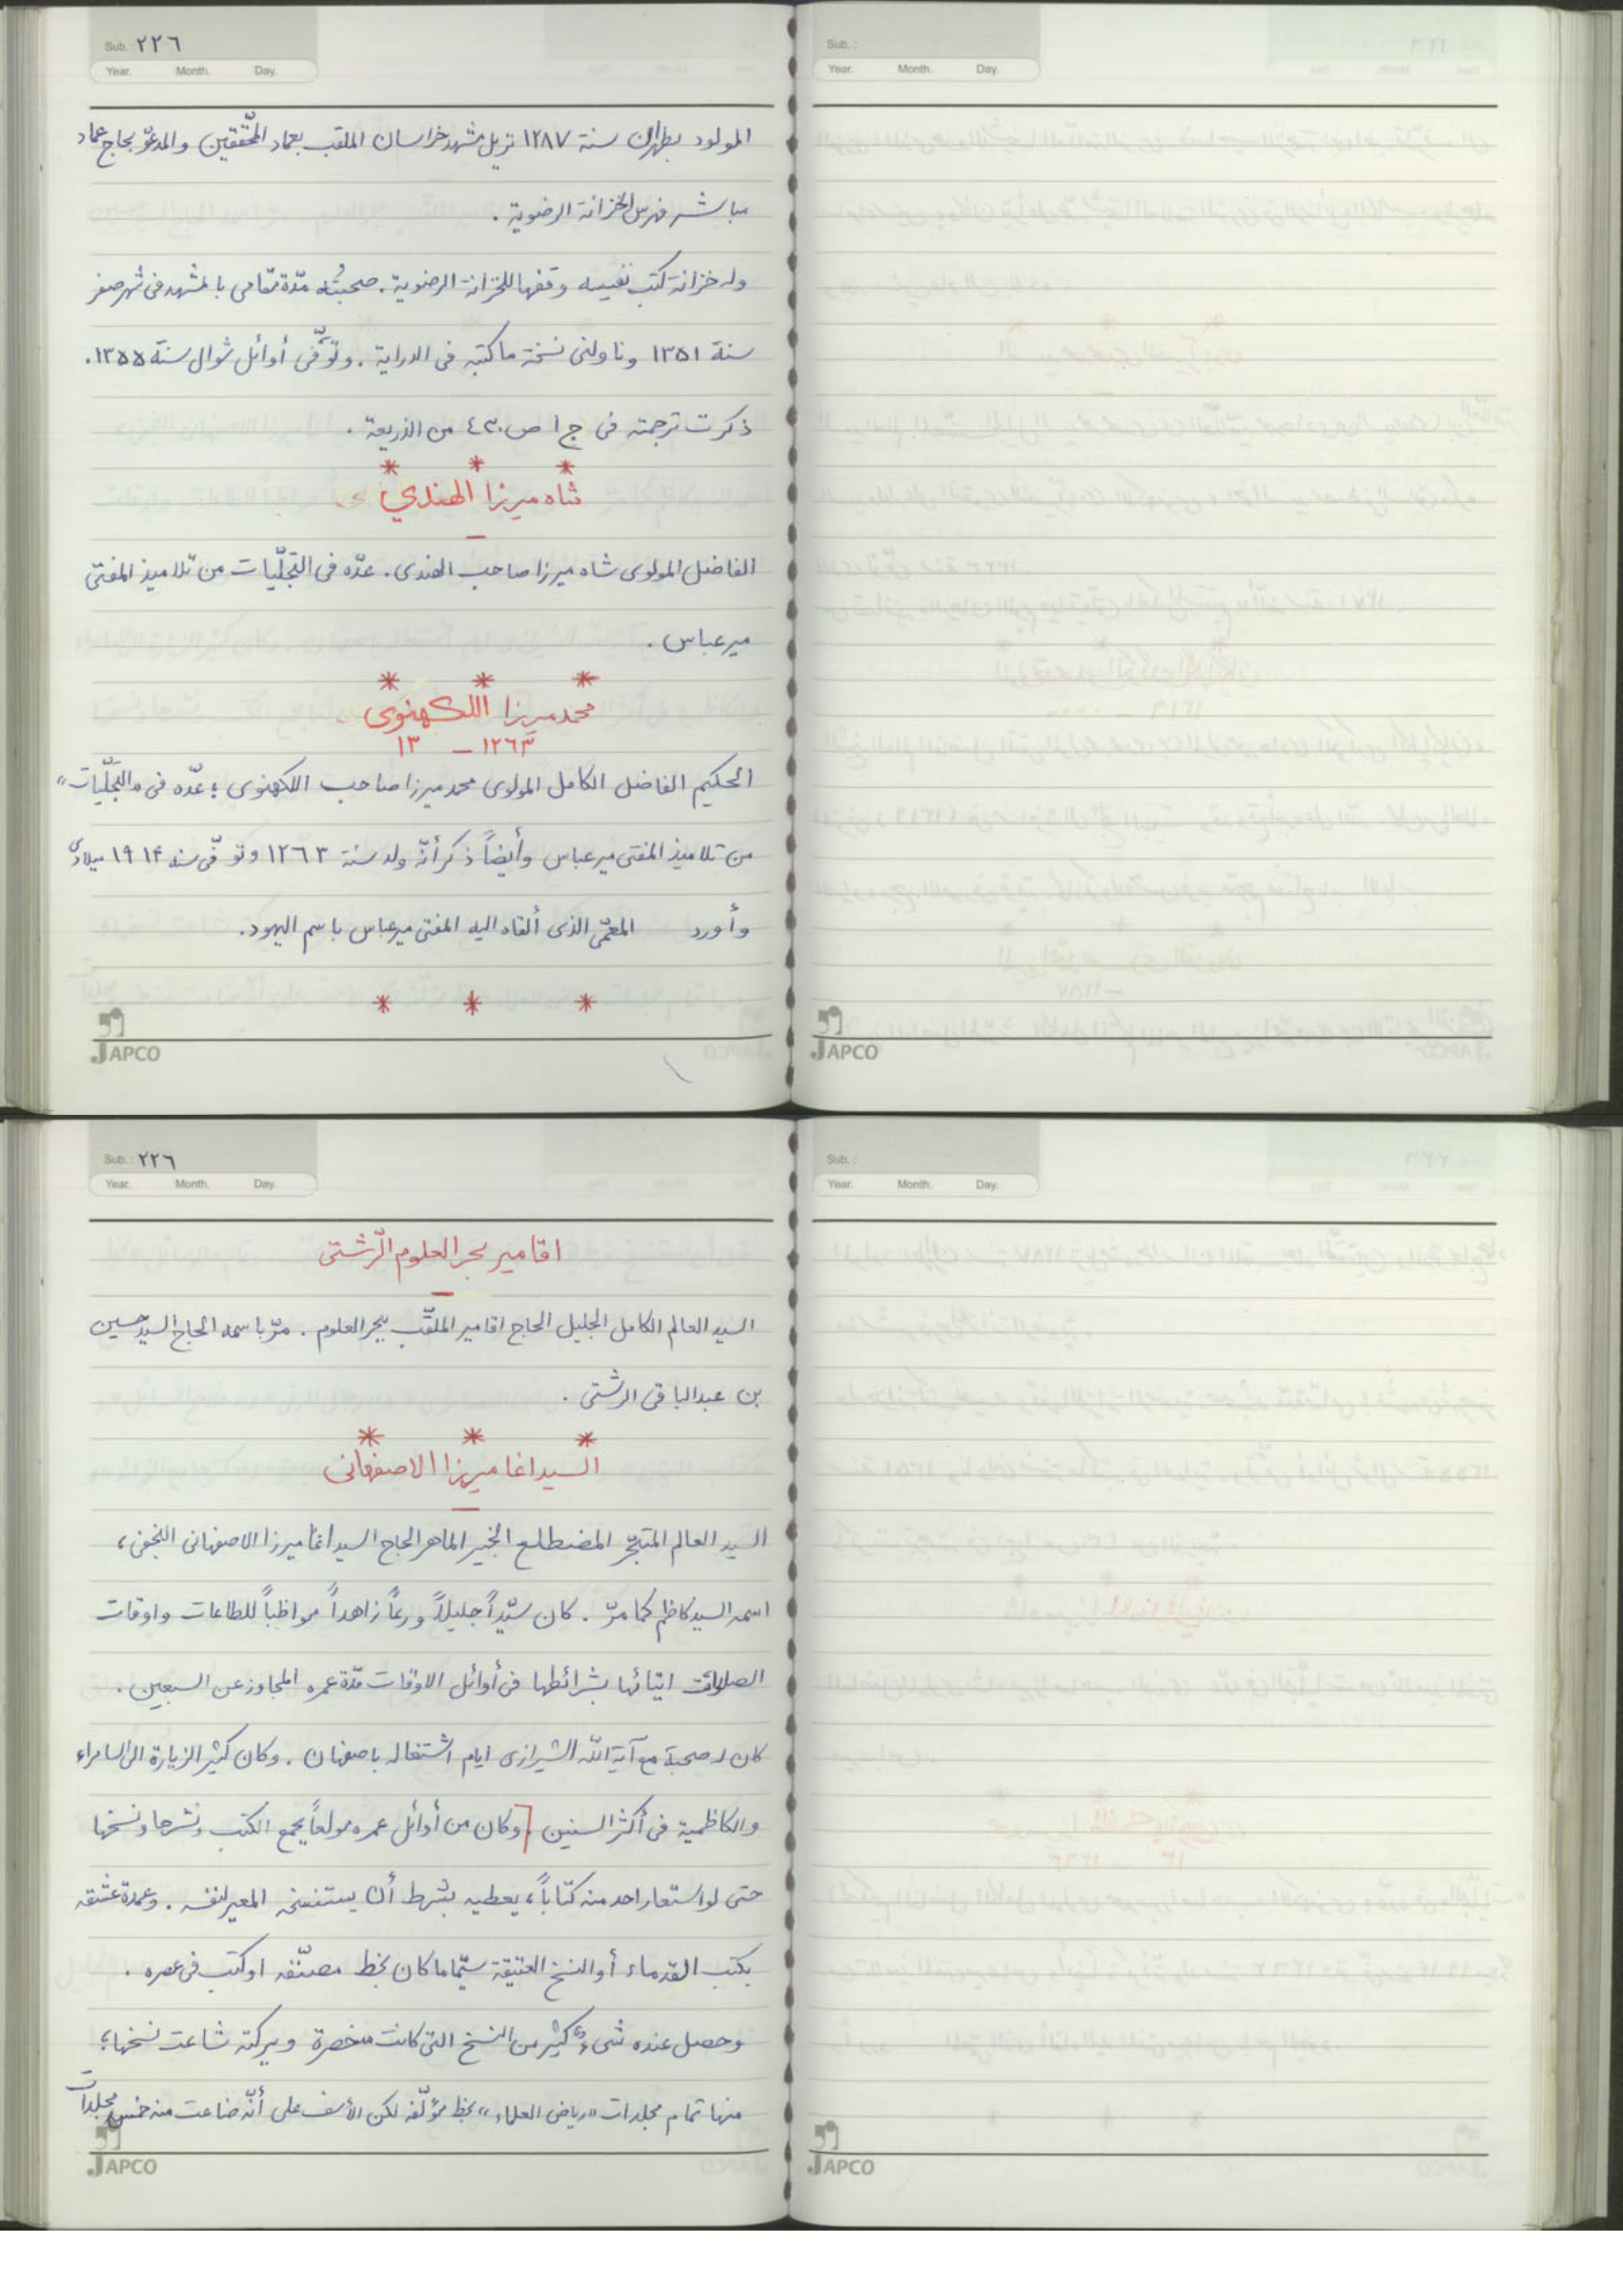 Sub.: ٢٢٦
Year. Month. Day.
المولود بطهران سنة ١٢٨٧ نزيل مشهد خراسان الملقب بعماد المحققين والمدعوّ بحاج عماد
مباشر فهرس الخزانة الرضوية .
وله خزانة كتب نفيسه وقفها للخزانة الرضوية . صحبتُه مدّة مقامى بالمشهد فى شهر صفر
سنة ١٣٥١ وناولنى نسخة ما كتبه فى الدراية . وتوّفى أوائل شوال سنة ١٣٥٥ .
ذكرت ترجمته فى ج ١ ص ٤٣٠ من الذريعة .
* * *
شاه ميرزا الهندي
—
الفاضل المولوى شاه ميرزا صاحب الهندى . عدّه فى التجلّيات من تلاميذ المفتى
مير عباس .
* * *
محمد ميرزا اللكهنوى
١٢٦٣ — ١٣
الحكيم الفاضل الكامل المولوى محمد ميرزا صاحب اللكهنوى ؛ عدّه فى «التجلّيات»
من تلاميذ المفتى مير عباس وأيضاً ذكر أنّه ولد سنة ١٢٦٣ وتوفّى سنه ١٩١۴ ميلادى
وأورد المعمّى الذى ألقاه اليه المفتى ميرعباس باسم اليهود .
* * *
JAPCO
Sub.:
Year. Month. Day.
JAPCO
Sub.: ٢٢٦
Year. Month. Day.
اقا مير بحر العلوم الرّشتى
—
السيد العالم الكامل الجليل الحاج اقا مير الملقّب ببحر العلوم . مرّ باسمه الحاج السيد حسين
بن عبدالباقى الرشتى .
* * *
السيد اغا ميرزا الاصفهانى
—
السيد العالم المتبحّر المضطلع الخبير الماهر الحاج السيد اغا ميرزا الاصفهانى النجفى ،
اسمه السيد كاظم كما مرّ . كان سيّداً جليلاً ورعاً زاهداً مواظباً للطاعات واوقات
الصلوات اتيانها بشرائطها فى أوائل الاوقات مدّة عمره المجاوز عن السبعين .
كان له صحبة مع آية اللّه الشيرازى ايام اشتغاله باصفهان . وكان كثير الزيارة الى السامراء
والكاظمية فى أكثر السنين . [وكان من أوائل عمره مولعاً بجمع الكتب ونشرها ونسخها
حتى لو استعار احد منه كتاباً ، يعطيه بشرط أن يستنسخه المعير لنفسه . وعمدة عشقه
بكتب القدماء أو النسخ العتيقة سيّما ما كان بخط مصنّفه او كتب فى عصره .
وحصل عنده شىءٌ كثير من النسخ التى كانت منحصرة وببركته شاعت نسخها ؛
منها تمام مجلدات «رياض العلماء» بخط مؤلّفه لكن الأسف على أنّه ضاعت منه خمس مجلدات
JAPCO
Sub.:
Year. Month. Day.
JAPCO